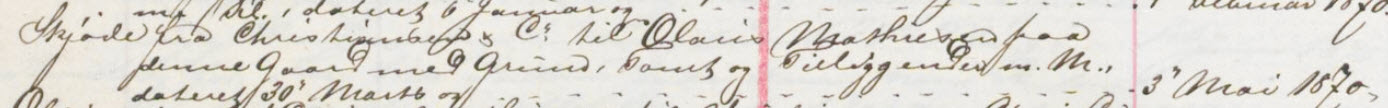 m. fl., dateret 6 Januar og
Skjøde fra Christiansen & Cº til Olaus Mathiesen paa
denne Gaard med Grund, Tomt og Tilliggender m. M.,
dateret 30" Marts og - - - - - - - - - 3" Mai 1870,